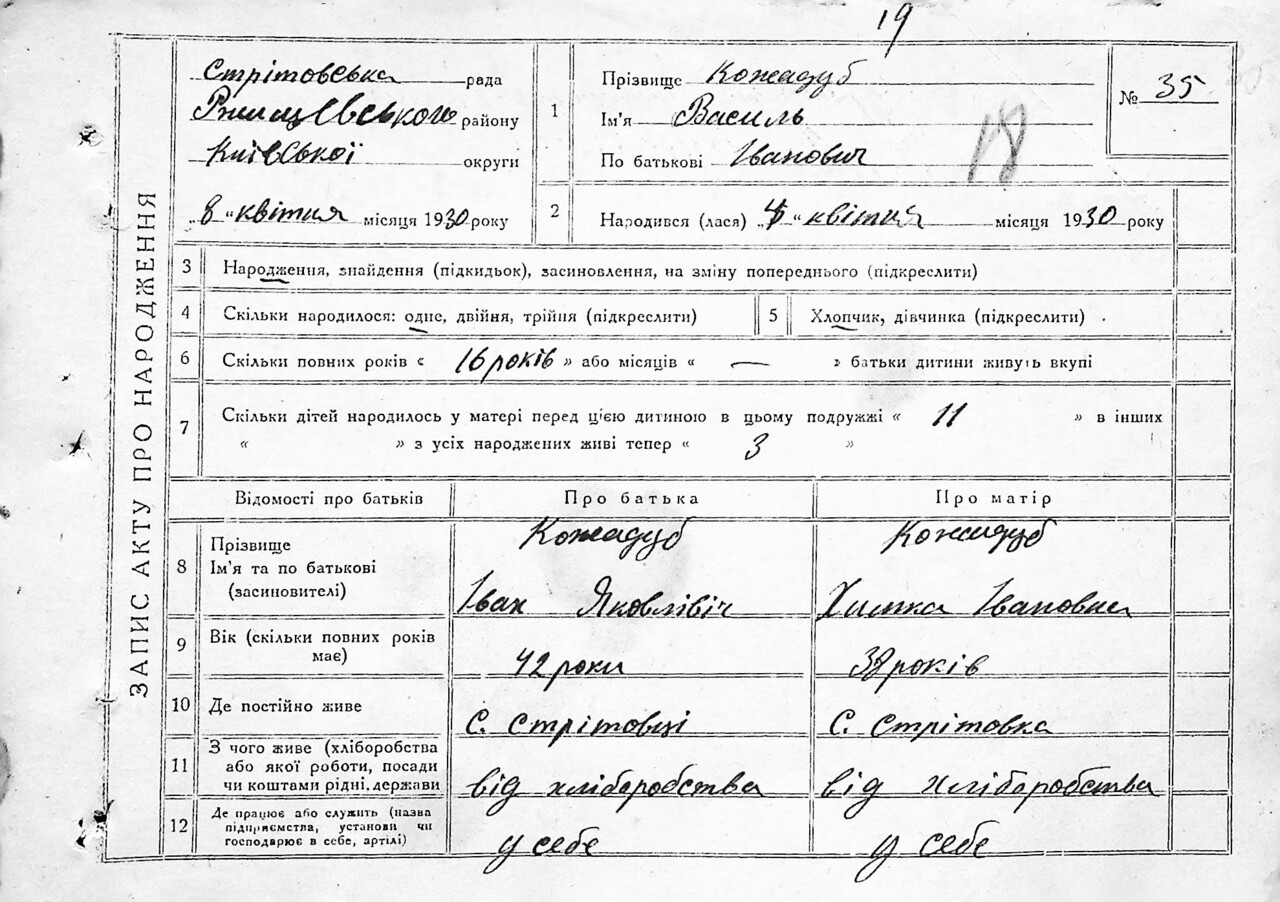 19
ЗАПИС АКТУ ПРО НАРОДЖЕННЯ
Стрітовська рада
Ржищевського району
Київської округи
„8“ квітня місяця 1930 року
1
Прізвище Кожадуб
Ім'я Василь
По батькові Іванович
18
№ 35
2
Народився (лася) „4“ квітня місяця 1930 року
3 Народження, знайдення (підкидьок), засиновлення, на зміну попереднього (підкреслити)
4 Скільки народилося: одне, двійня, трійня (підкреслити)
5 Хлопчик, дівчинка (підкреслити)
6 Скільки повних років « 16 років » або місяців « — » батьки дитини живуть вкупі
7 Скільки дітей народилось у матері перед цією дитиною в цьому подружжі « 11 » в інших
« » з усіх народжених живі тепер « 3 »
Відомості про батьків Про батька Про матір
8 Прізвище
Ім'я та по батькові
(засиновителі)
Кожадуб
Іван Яковлівіч
Кожадуб
Химка Івановна
9 Вік (скільки повних років
має)
42 роки
38 років
10 Де постійно живе
с. Стрітовці
с. Стрітовка
11 З чого живе (хліборобства
або якої роботи, посади
чи коштами рідні, держави
від хлібаробства
від хлібаробства
12 Де працює або служить (назва
підприємства, установи чи
господарює в себе, артілі)
у себе
у себе